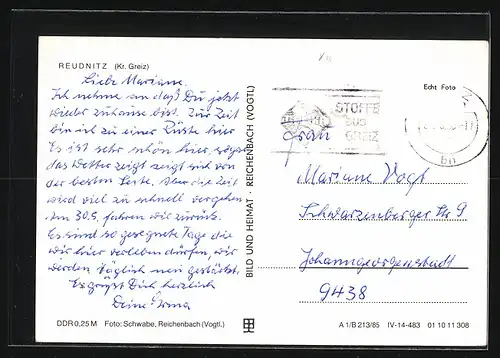 REUDNITZ (Kr. Greiz)
Liebe Mariane.
Ich nehme an daß Du jetzt
wieder zuhause bist. Zur Zeit
bin ich zu einer Rüste hier
Es ist sehr schön hier, sogar
das Wetter zeigt sich von
der besten Seite. Aber die Zeit
wird viel zu schnell vergehen
Am 30.9. fahren wir zurück.
Es sind so gesegnete Tage die
wir hier verleben dürfen, wir
werden täglich neu gestärkt.
Es grüßt Dich herzlich
Deine Irma
DDR 0,25 M Foto: Schwabe, Reichenbach (Vogtl.)
BILD UND HEIMAT · REICHENBACH (VOGTL)
Echt Foto
STOFFE
AUS
GREIZ
Frau
Mariane Vogt
Schwarzenberger Str 9
Johanngeorgenstadt
9438
A 1/B 213/85 IV-14-483 01 10 11 308